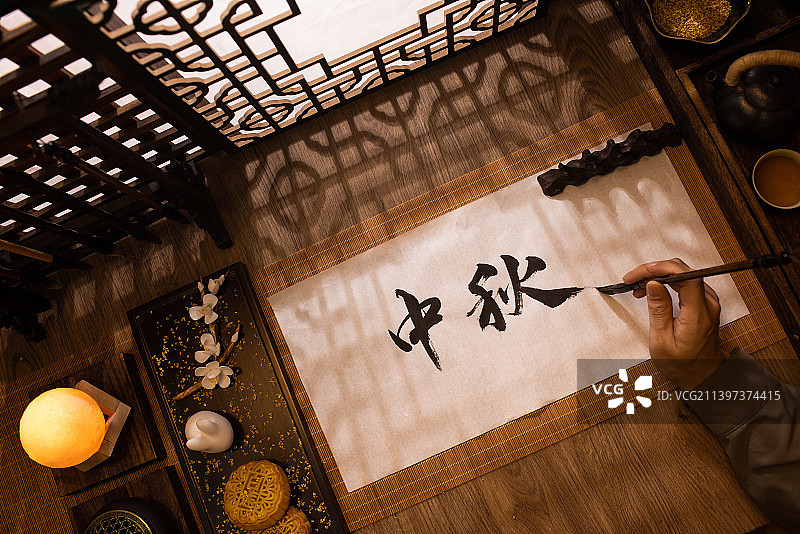 中秋
VCG
ID:VCG211397374415